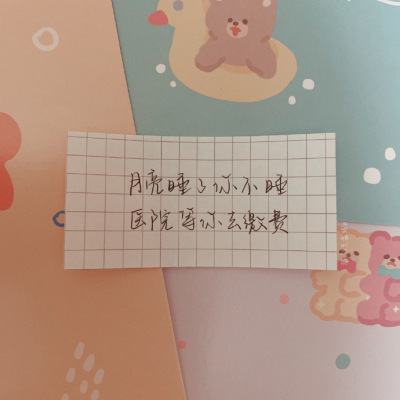 月亮睡了你不睡
医院等你去缴费